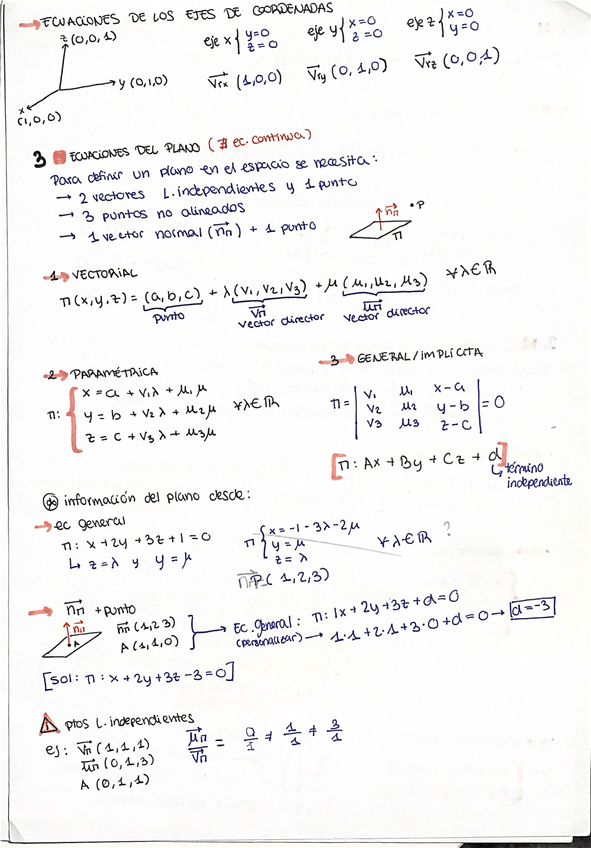 → ECUACIONES DE LOS EJES DE COORDENADAS
z (0,0,1)
y (0,1,0)
x
(1,0,0)
eje x { y=0 z=0 eje y { x=0 z=0 eje z { x=0 y=0
Vrx (1,0,0) Vry (0,1,0) Vrz (0,0,1)
3 ECUACIONES DEL PLANO (∄ ec. continua)
Para definir un plano en el espacio se necesita:
→ 2 vectores L. independientes y 1 punto
→ 3 puntos no alineados
→ 1 vector normal (nπ) + 1 punto
nπ • P
π
1→ VECTORIAL
π (x,y,z) = (a,b,c) + λ (v1, v2, v3) + μ (μ1, μ2, μ3) ∀λ∈ℝ
punto Vπ μπ
vector director vector director
2→ PARAMÉTRICA
π: { x = a + v1λ + μ1μ
y = b + v2λ + μ2μ ∀λ∈ℝ
z = c + v3λ + μ3μ
3→ GENERAL/IMPLÍCITA
π = | v1 μ1 x-a |
| v2 μ2 y-b | = 0
| v3 μ3 z-c |
[π: Ax + By + Cz + d]
↳ término
independiente
⊛ información del plano desde:
→ ec general
π: x+2y+3z+1=0
↳ z=λ y y=μ
π { x=-1-3λ-2μ
y = μ ∀λ∈ℝ ?
z = λ
P( 1,2,3)
→ nπ + punto
nπ
A
nπ (1,2,3)
A (1,1,0)
→ Ec. general: π: 1x+2y+3z+d=0
(personalizar) → 1·1+2·1+3·0+d=0 → d=-3
[sol: π: x+2y+3z-3=0]
ptos L. independientes
ej: Vπ (1,1,1)
μπ (0,1,3)
A (0,1,1)
μπ/Vπ = 0/1 ≠ 1/1 ≠ 3/1